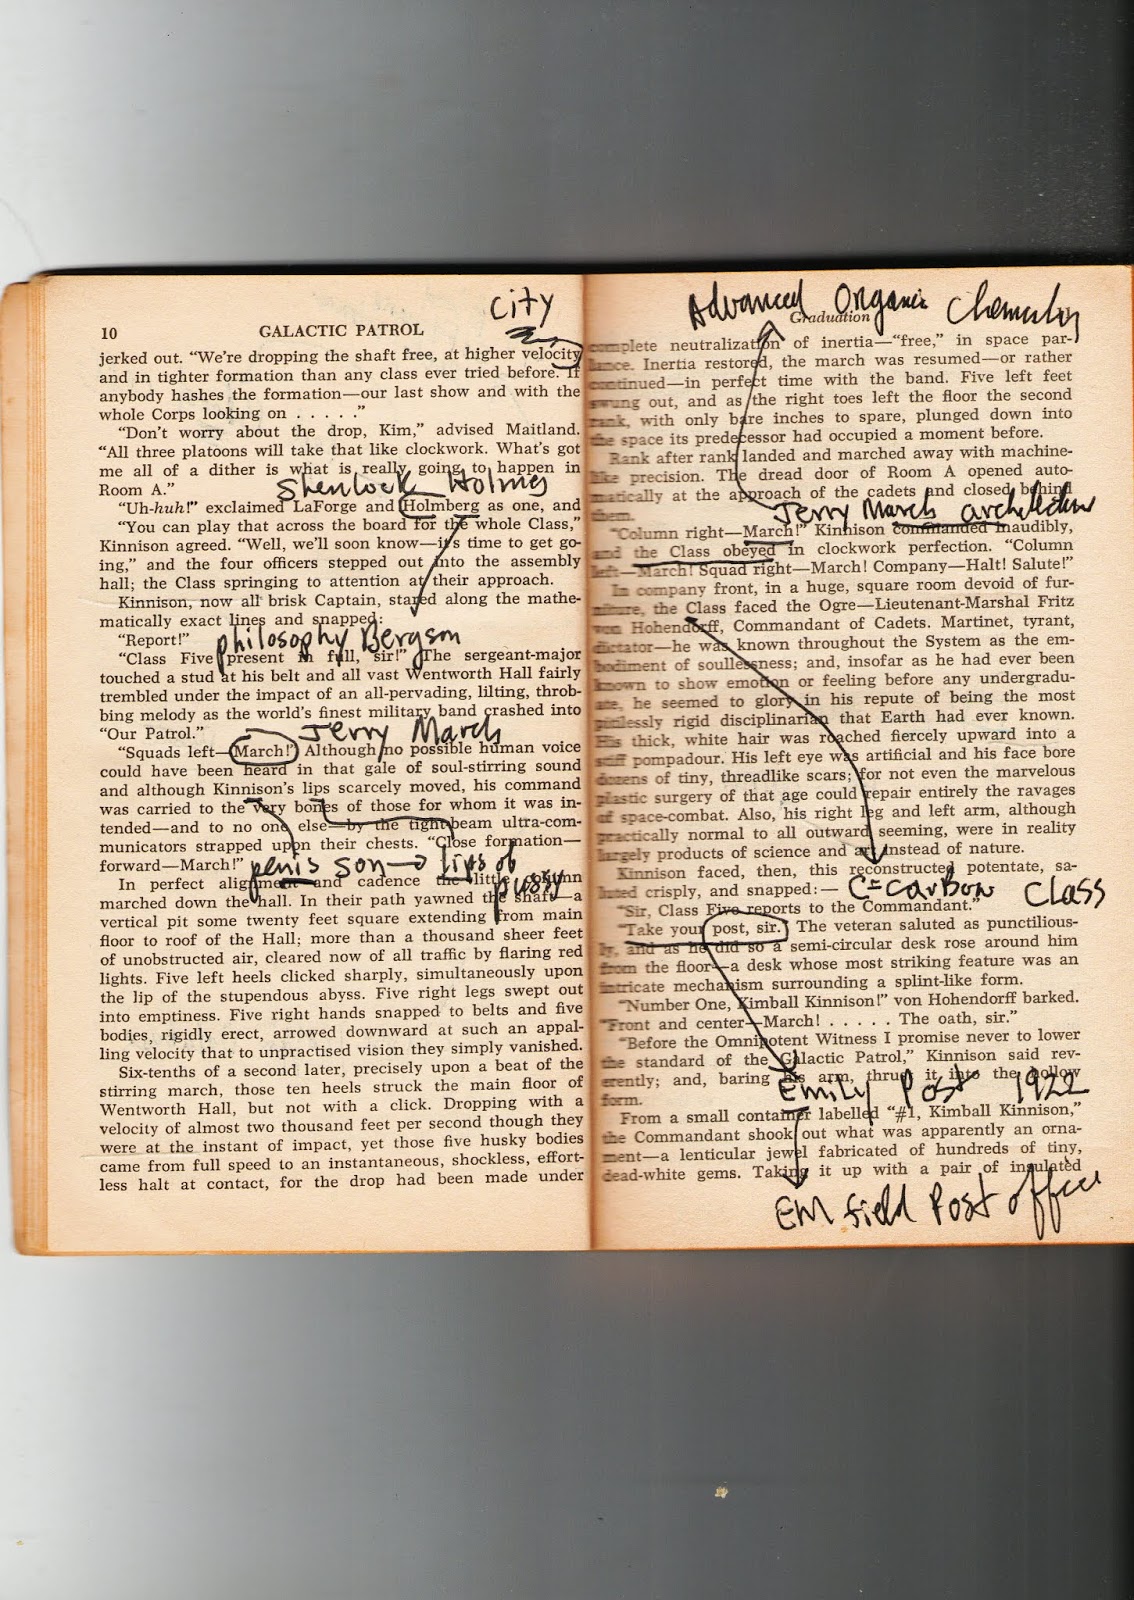 City
10 GALACTIC PATROL
jerked out. “We’re dropping the shaft free, at higher velocity
and in tighter formation than any class ever tried before. If
anybody hashes the formation—our last show and with the
whole Corps looking on . . . . .”
“Don’t worry about the drop, Kim,” advised Maitland.
“All three platoons will take that like clockwork. What’s got
me all of a dither is what is really going to happen in
Room A.”
Sherlock Holmes
“Uh-huh!” exclaimed LaForge and Holmberg as one, and
“You can play that across the board for the whole Class,”
Kinnison agreed. “Well, we’ll soon know—it’s time to get go-
ing,” and the four officers stepped out into the assembly
hall; the Class springing to attention at their approach.
Kinnison, now all brisk Captain, stared along the mathe-
matically exact lines and snapped:
“Report!”
philosophy Bergson
“Class Five present in full, sir!” The sergeant-major
touched a stud at his belt and all vast Wentworth Hall fairly
trembled under the impact of an all-pervading, lilting, throb-
bing melody as the world’s finest military band crashed into
“Our Patrol.”
Jerry March
“Squads left—March!” Although no possible human voice
could have been heard in that gale of soul-stirring sound
and although Kinnison’s lips scarcely moved, his command
was carried to the very bones of those for whom it was in-
tended—and to no one else—by the tight-beam ultra-com-
municators strapped upon their chests. “Close formation—
forward—March!”
penis son → lips of
pussy
In perfect alignment and cadence the little column
marched down the hall. In their path yawned the shaft—a
vertical pit some twenty feet square extending from main
floor to roof of the Hall; more than a thousand sheer feet
of unobstructed air, cleared now of all traffic by flaring red
lights. Five left heels clicked sharply, simultaneously upon
the lip of the stupendous abyss. Five right legs swept out
into emptiness. Five right hands snapped to belts and five
bodies, rigidly erect, arrowed downward at such an appal-
ling velocity that to unpractised vision they simply vanished.
Six-tenths of a second later, precisely upon a beat of the
stirring march, those ten heels struck the main floor of
Wentworth Hall, but not with a click. Dropping with a
velocity of almost two thousand feet per second though they
were at the instant of impact, yet those five husky bodies
came from full speed to an instantaneous, shockless, effort-
less halt at contact, for the drop had been made under
Advanced Organic Chemistry
Graduation
complete neutralization of inertia—“free,” in space par-
lance. Inertia restored, the march was resumed—or rather
continued—in perfect time with the band. Five left feet
swung out, and as the right toes left the floor the second
rank, with only bare inches to spare, plunged down into
the space its predecessor had occupied a moment before.
Rank after rank landed and marched away with machine-
like precision. The dread door of Room A opened auto-
matically at the approach of the cadets and closed behind
them.
Jerry March
“Column right—March!” Kinnison commanded inaudibly,
and the Class obeyed in clockwork perfection. “Column
left—March! Squad right—March! Company—Halt! Salute!”
In company front, in a huge, square room devoid of fur-
niture, the Class faced the Ogre—Lieutenant-Marshal Fritz
von Hohendorff, Commandant of Cadets. Martinet, tyrant,
dictator—he was known throughout the System as the em-
bodiment of soullessness; and, insofar as he had ever been
known to show emotion or feeling before any undergradu-
ate, he seemed to glory in his repute of being the most
pitilessly rigid disciplinarian that Earth had ever known.
His thick, white hair was roached fiercely upward into a
stiff pompadour. His left eye was artificial and his face bore
dozens of tiny, threadlike scars; for not even the marvelous
plastic surgery of that age could repair entirely the ravages
of space-combat. Also, his right leg and left arm, although
practically normal to all outward seeming, were in reality
largely products of science and art instead of nature.
Kinnison faced, then, this reconstructed potentate, sa-
luted crisply, and snapped:—
C=carbon Class
“Sir, Class Five reports to the Commandant.”
“Take your post, sir.” The veteran saluted as punctilious-
ly, and as he did so a semi-circular desk rose around him
from the floor—a desk whose most striking feature was an
intricate mechanism surrounding a splint-like form.
“Number One, Kimball Kinnison!” von Hohendorff barked.
“Front and center—March! . . . . . The oath, sir.”
“Before the Omnipotent Witness I promise never to lower
the standard of the Galactic Patrol,” Kinnison said rev-
erently; and, baring his arm, thrust it into the hollow
form.
Emily Post 1922
From a small container labelled “#1, Kimball Kinnison,”
the Commandant shook out what was apparently an orna-
ment—a lenticular jewel fabricated of hundreds of tiny,
dead-white gems. Taking it up with a pair of insulated
EM field Post office